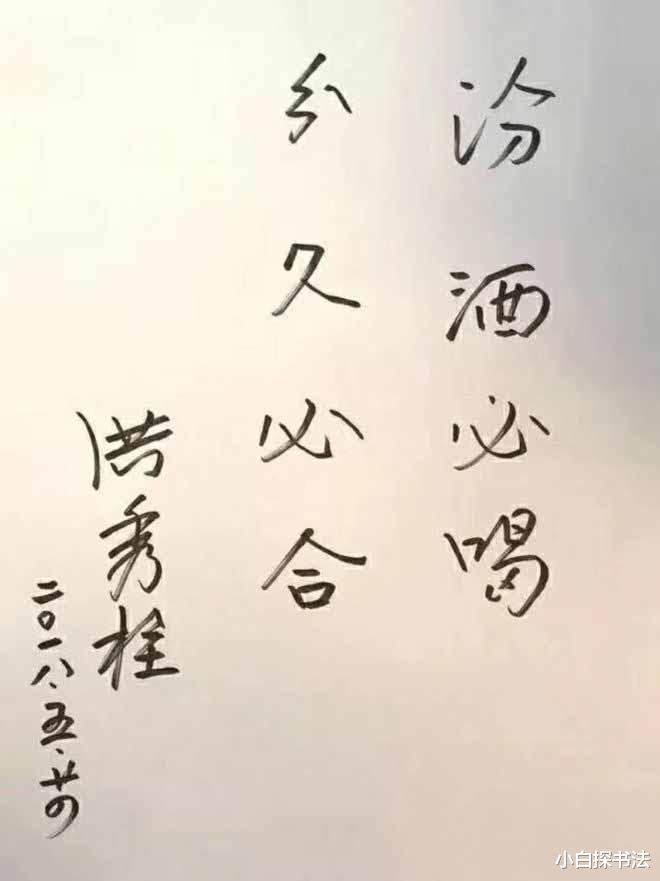 汾酒必喝
分久必合
洪秀柱
二〇一八.五.廿四
小白探书法